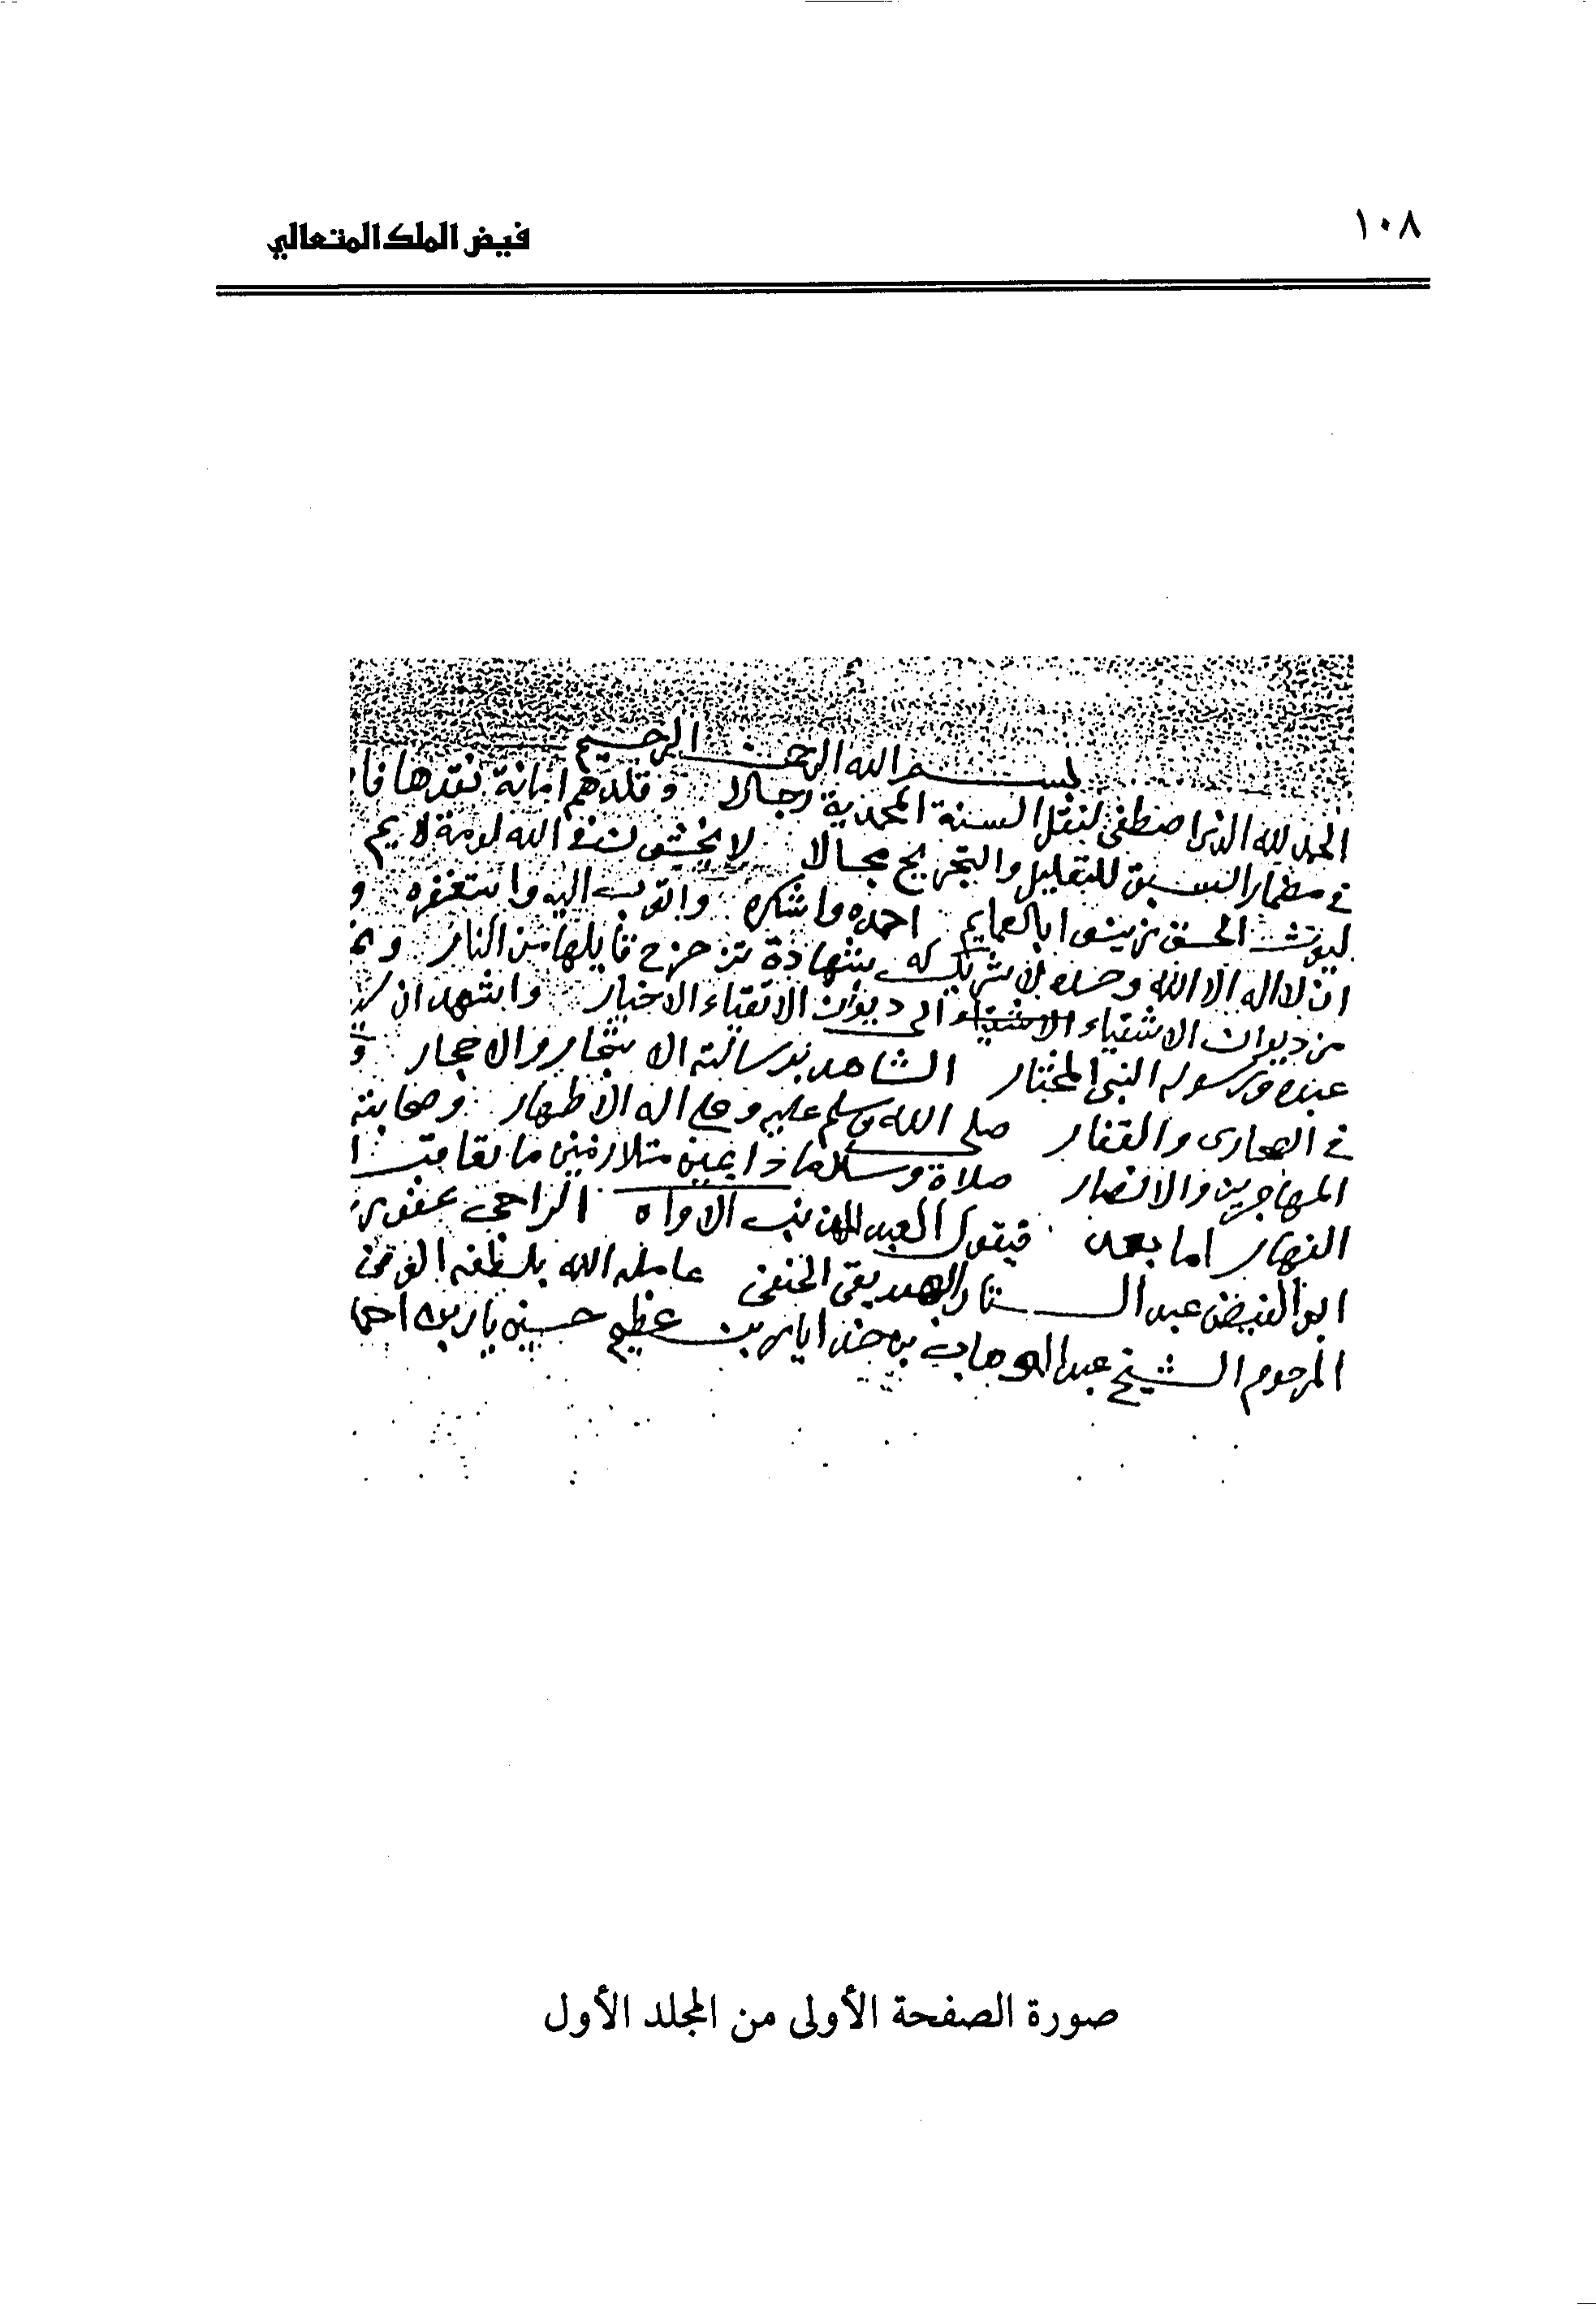 ١٠٨
فيض الملك المتعالي
بسم الله الرحمن الرحيم
الحمد لله الذي اصطفى لنقل السنة المحمدية رجالا وقلدهم امانة نقدها
في مضمار السبق للتعليل والتجريح مجالا لا يخشون في الله لومة لايم
ليوث الحق تزينوا بالعمايم احمده واشكره واتوب اليه واستغفره و
ان لا اله الا الله وحده لا شريك له شهادة تزحزح قايلها من النار
من ديوان الاشقياء الى ديوان الاتقياء الاخيار واشهد ان
عبده ورسوله النبي المختار الشاهد برسالته الاشجار والاحجار و
في الصحارى والقفار صلى الله وسلم عليه وعلى اله الاطهار وصحابته
المهاجرين والانصار صلاة وسلاما دايمين متلازمين ما تعاقب ا
النهار اما بعد فيقول العبد المذنب الاواه الراجي عفو
ابو الفيض عبد الستار الصديقي الحنفي عامله الله بلطفه
المرحوم الشيخ عبد الوهاب بن خدايار بن عظيم حسين يار بن
صورة الصفحة الأولى من المجلد الأول